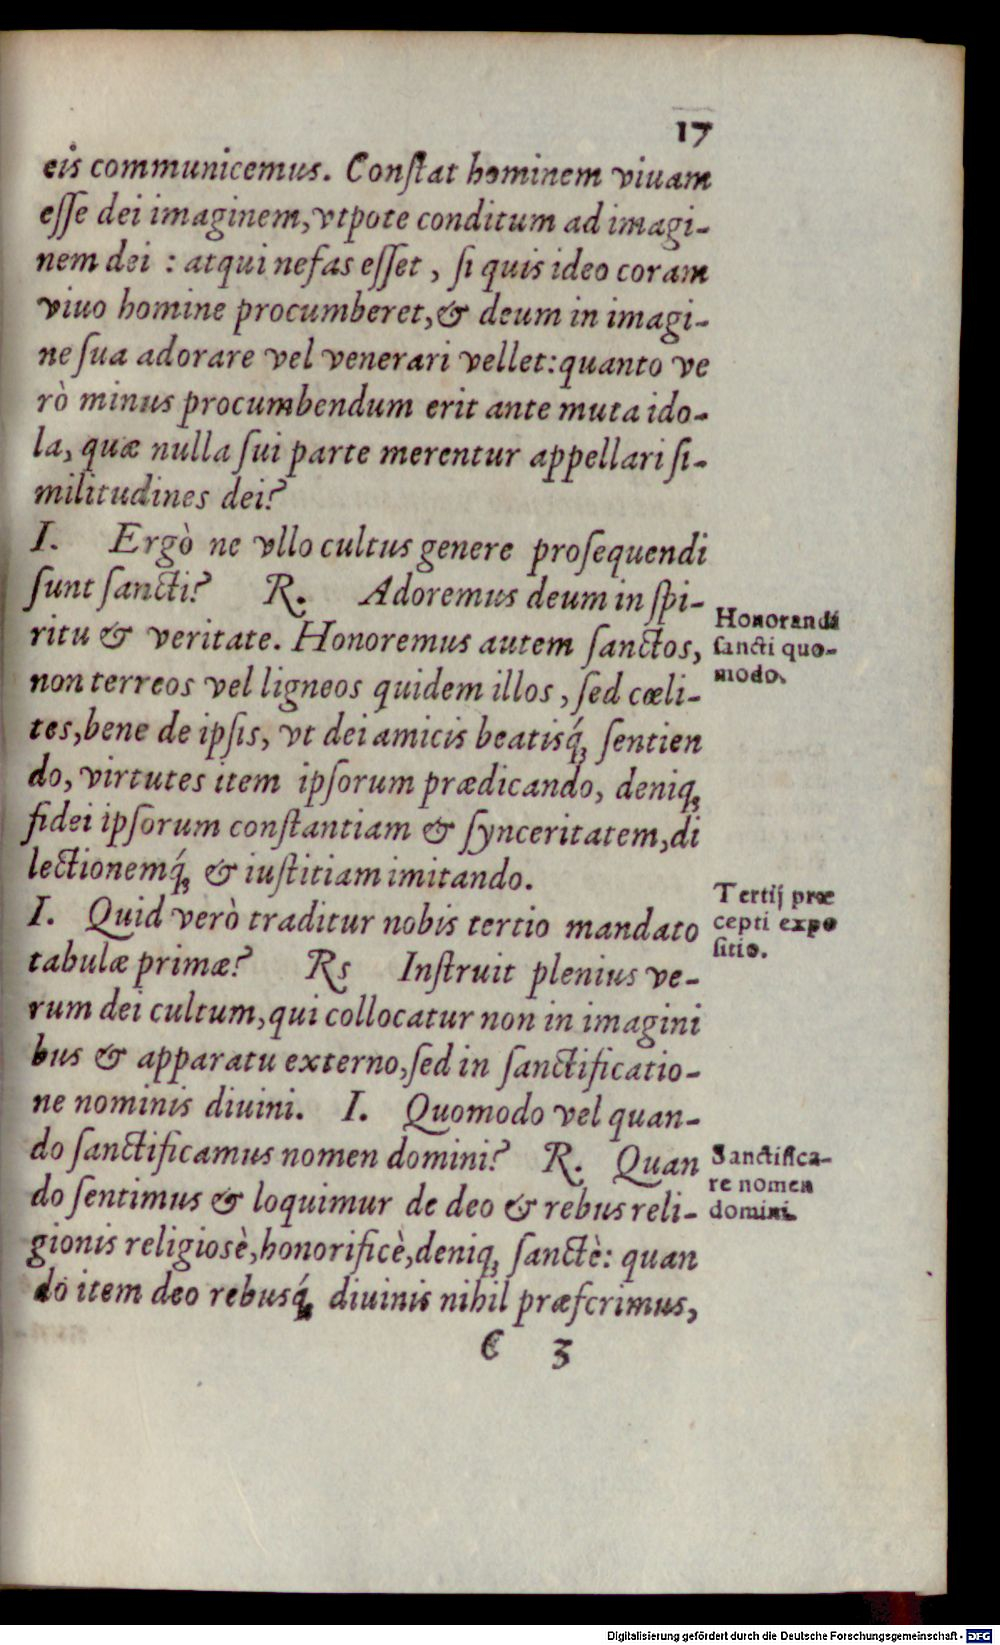 17
eis communicemus. Conſtat hominem viuam
eſſe dei imaginem, vtpote conditum ad imagi-
nem dei : atqui nefas eſſet , ſi quis ideo coram
viuo homine procumberet, & deum in imagi-
ne ſua adorare vel venerari vellet: quanto ve
rò minus procumbendum erit ante muta ido-
la, quæ nulla ſui parte merentur appellari ſi-
militudines dei?
I. Ergò ne vllo cultus genere proſequendi
ſunt ſancti? R. Adoremus deum in ſpi-
ritu & veritate. Honoremus autem ſanctos,
non terreos vel ligneos quidem illos, ſed cœli-
tes, bene de ipſis, vt dei amicis beatisq́ꝫ ſentien
do, virtutes item ipſorum prædicando, deniqꝫ
fidei ipſorum conſtantiam & ſynceritatem, di
lectionemq́ꝫ & iuſtitiam imitando.
Honorandi
ſancti quo-
modo.
I. Quid verò traditur nobis tertio mandato
tabulæ primæ? Rs Inſtruit plenius ve-
rum dei cultum, qui collocatur non in imagini
bus & apparatu externo, ſed in ſanctificatio-
ne nominis diuini. I. Quomodo vel quan-
do ſanctificamus nomen domini? R. Quan
do ſentimus & loquimur de deo & rebus reli-
gionis religiosè, honorificè, deniqꝫ ſanctè: quan
do item deo rebusq́ꝫ diuinis nihil præfcrimus,
Tertij præ
cepti expo
ſitio.
Sanctifica-
re nomen
domini.
C 3
Digitalisierung gefördert durch die Deutsche Forschungsgemeinschaft - DFG